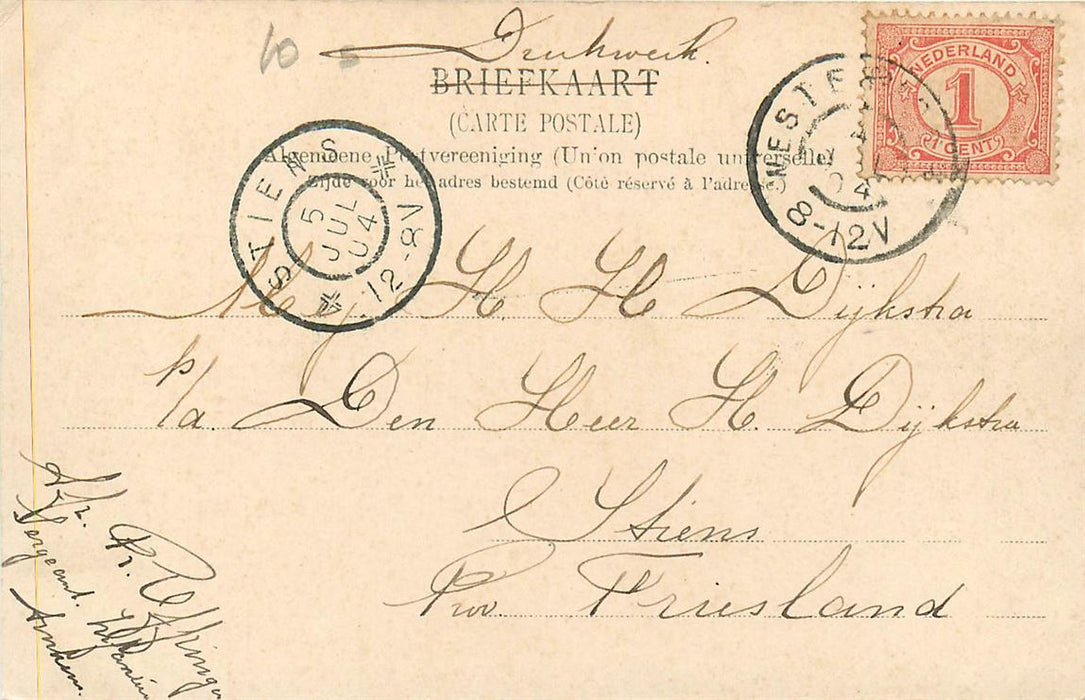 10 5
Drukwerk.
BRIEFKAART
(CARTE POSTALE)
Algemeene Postvereeniging (Union postale universelle)
Zijde voor het adres bestemd (Côté réservé à l'adresse.)
NEDERLAND
1
CENT
8-12V
STIENS
5
JUL
04
12-8V
Mej. H. H. Dijkstra
p/a. Den Heer H. Dijkstra
Stiens
Prov. Friesland
Afz.
Sergeant.
Arnhem.